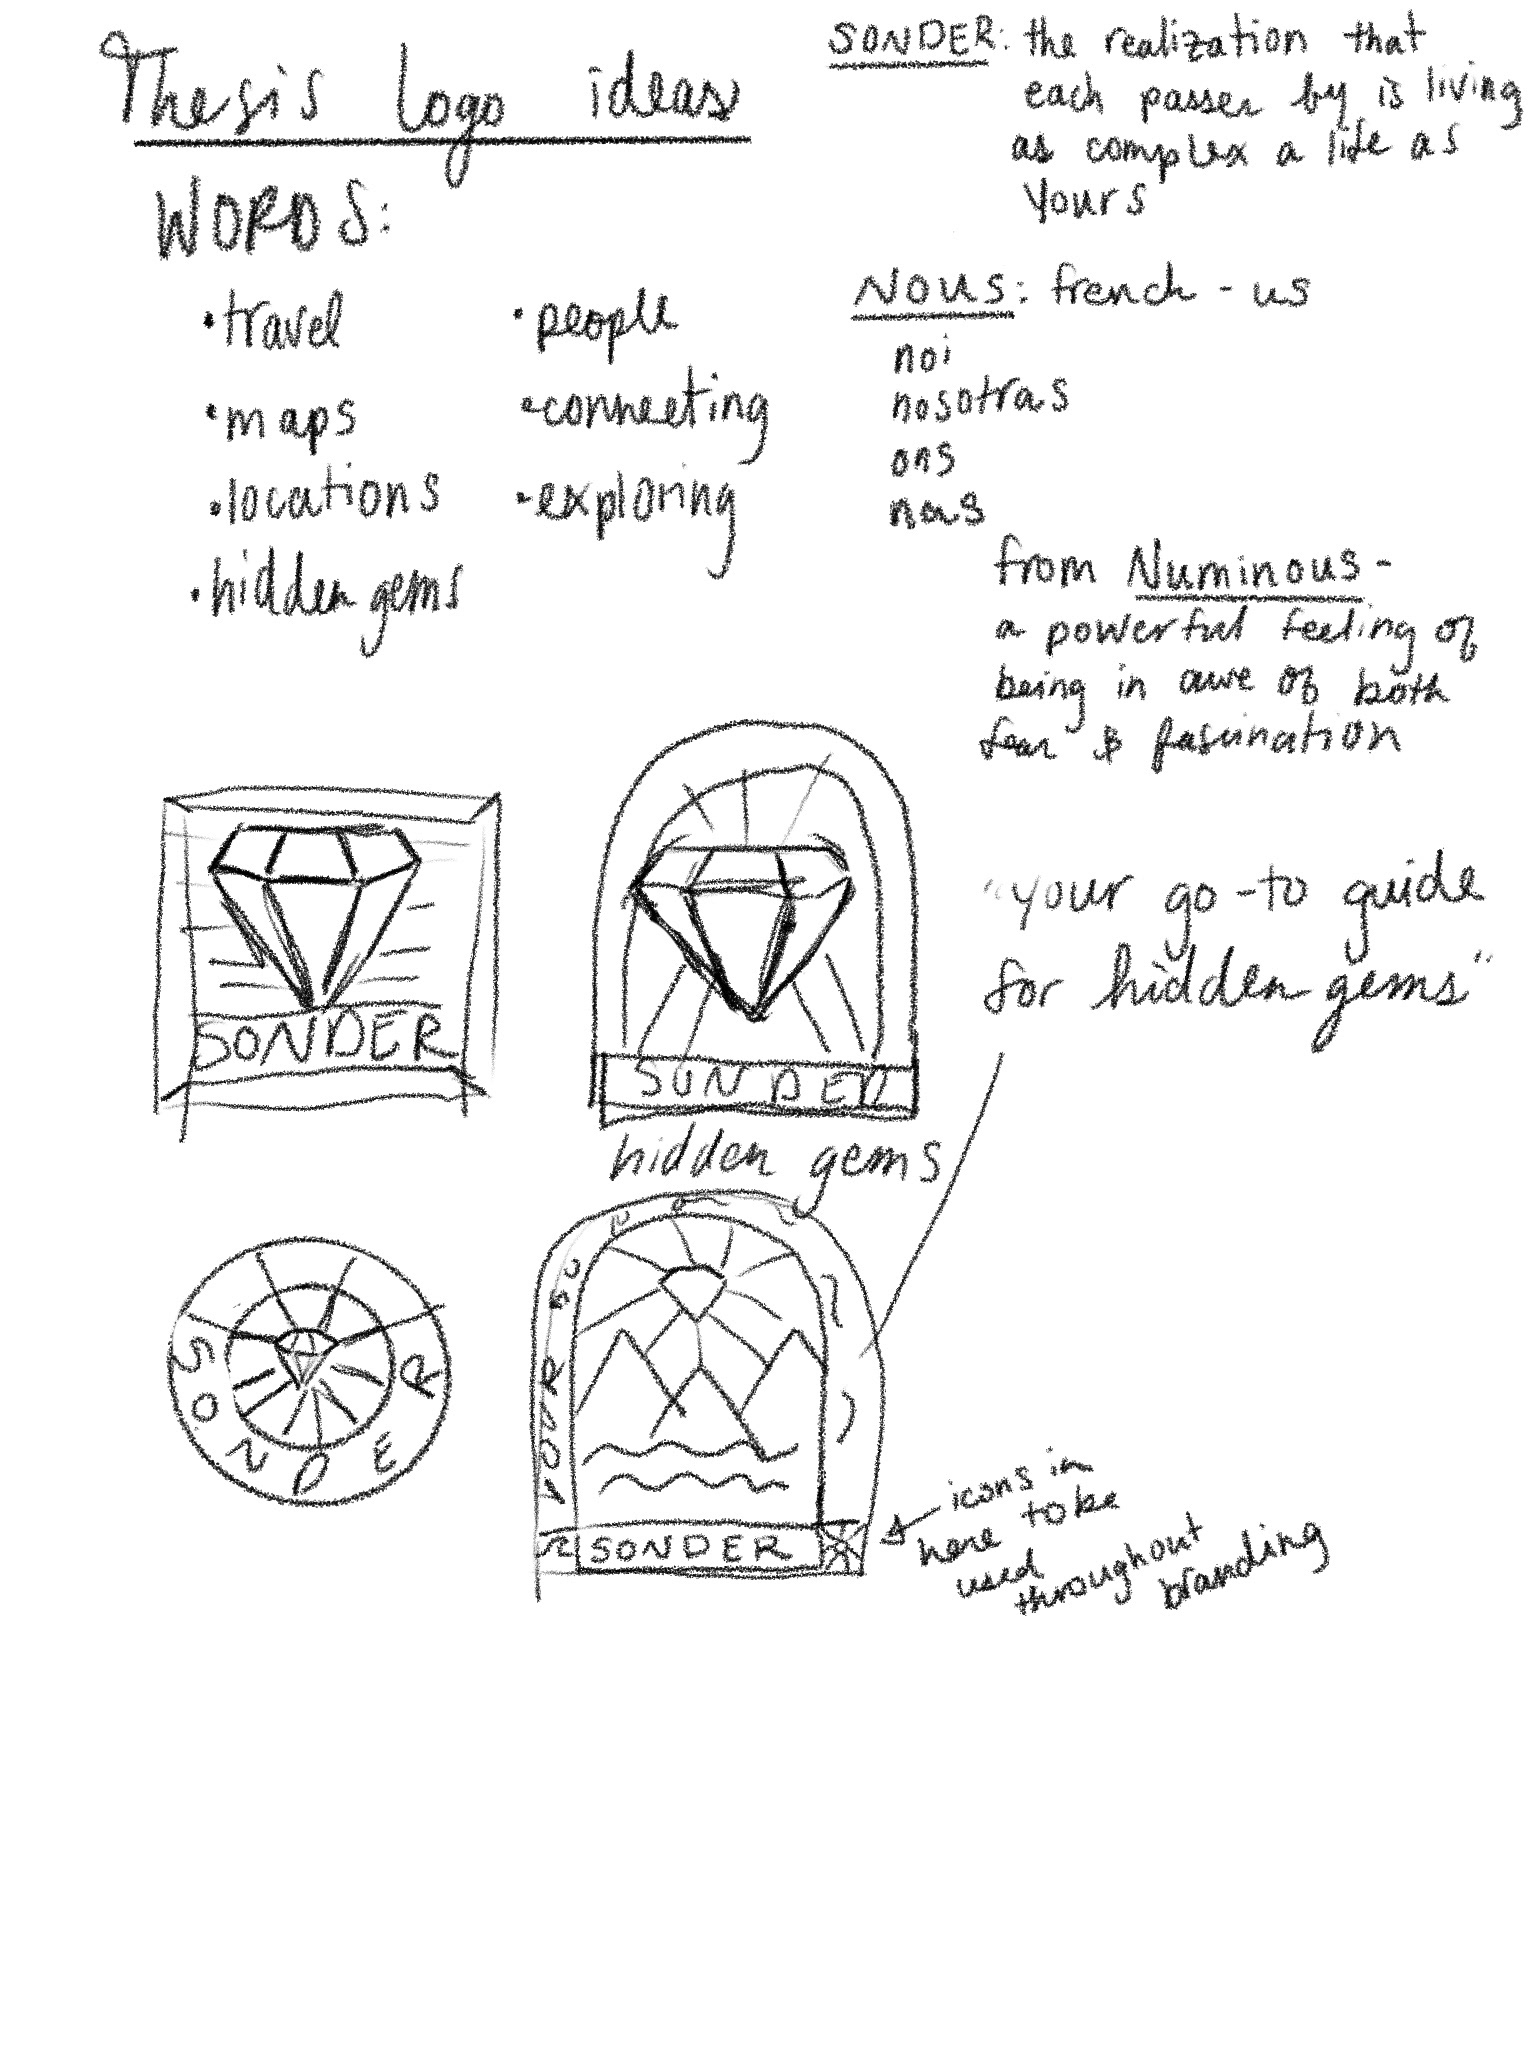 Thesis logo ideas
WORDS:
• travel
• maps
• locations
• hidden gems
• people
• connecting
• exploring
SONDER: the realization that
each passer by is living
as complex a life as
yours
NOUS: french - us
noi
nosotras
ons
nas
from Numinous -
a powerful feeling of
being in awe of both
fear & fascination
"your go-to guide
for hidden gems"
SONDER
SONDER
hidden gems
SONDER
YOUR GO
SONDER
icons in
here to be
used
throughout
branding